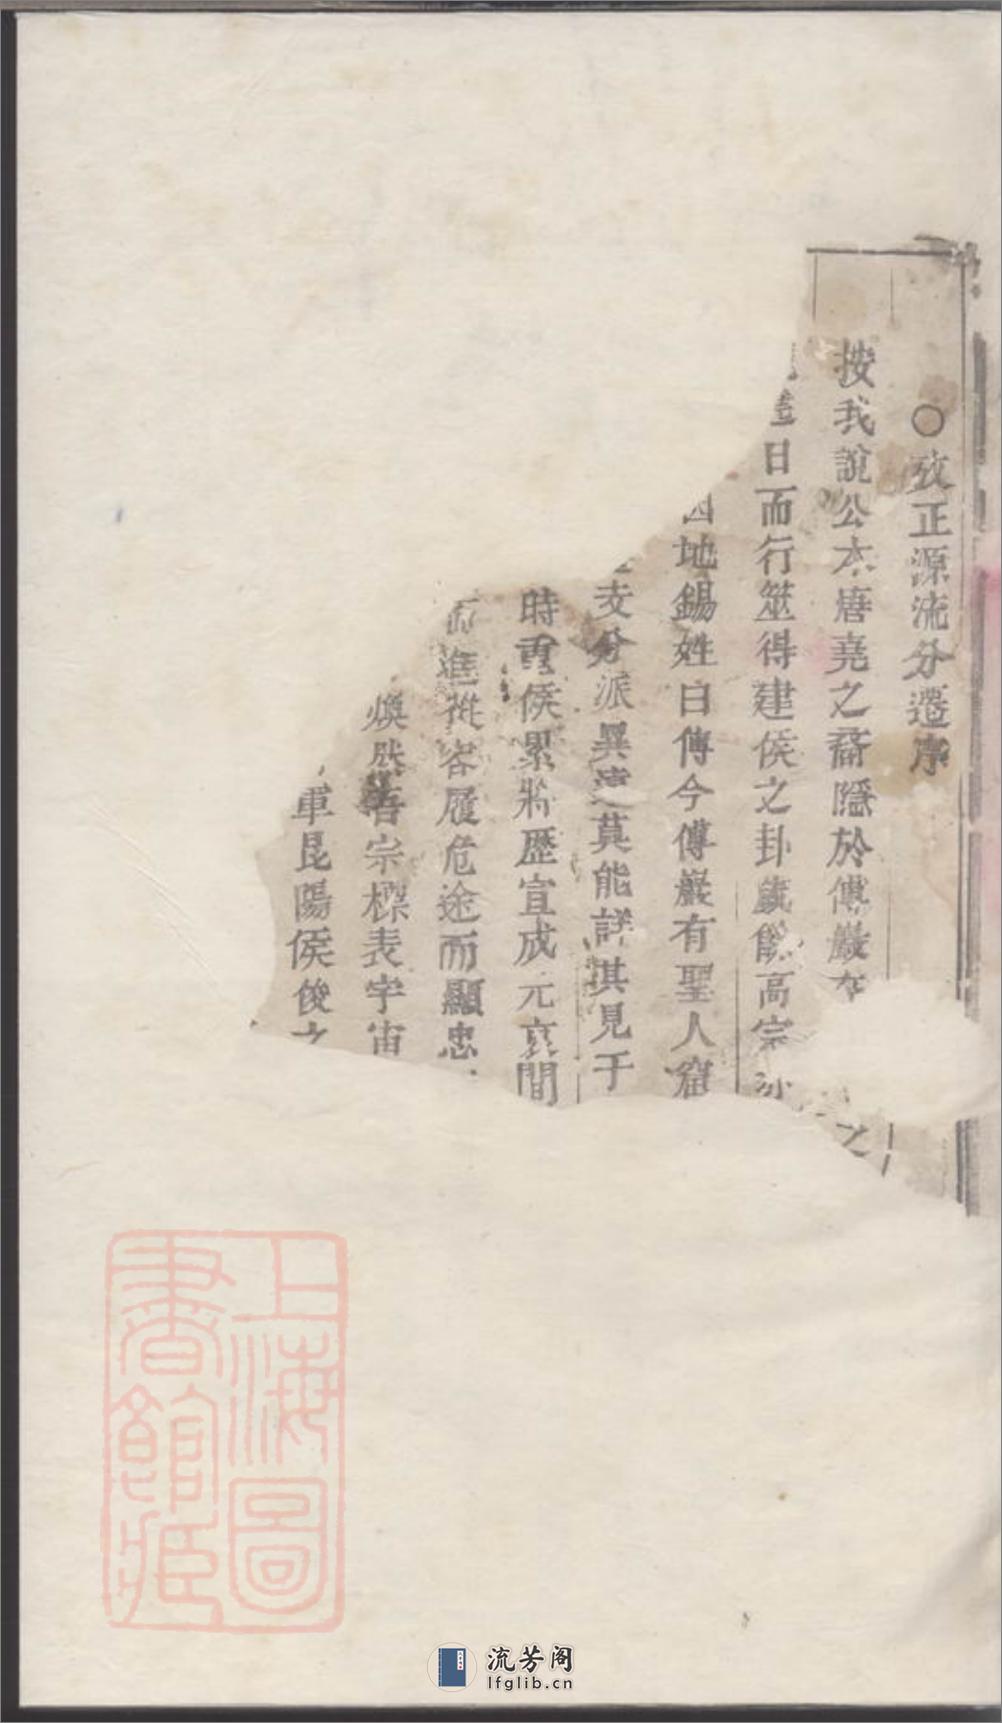 ○攷正源流分遷序
按我說公本唐堯之裔隱於傅巖
日而行筮得建侯之卦歲餘高宗
因地錫姓曰傅今傅巖有聖人窟
支分派異遠莫能詳其見于
時重侯累將歷宣成元哀間
進從容履危途而顯忠
煥然吾宗標表宇宙
軍昆陽侯俊之
上海圖書館藏
流芳阁
lfglib.cn